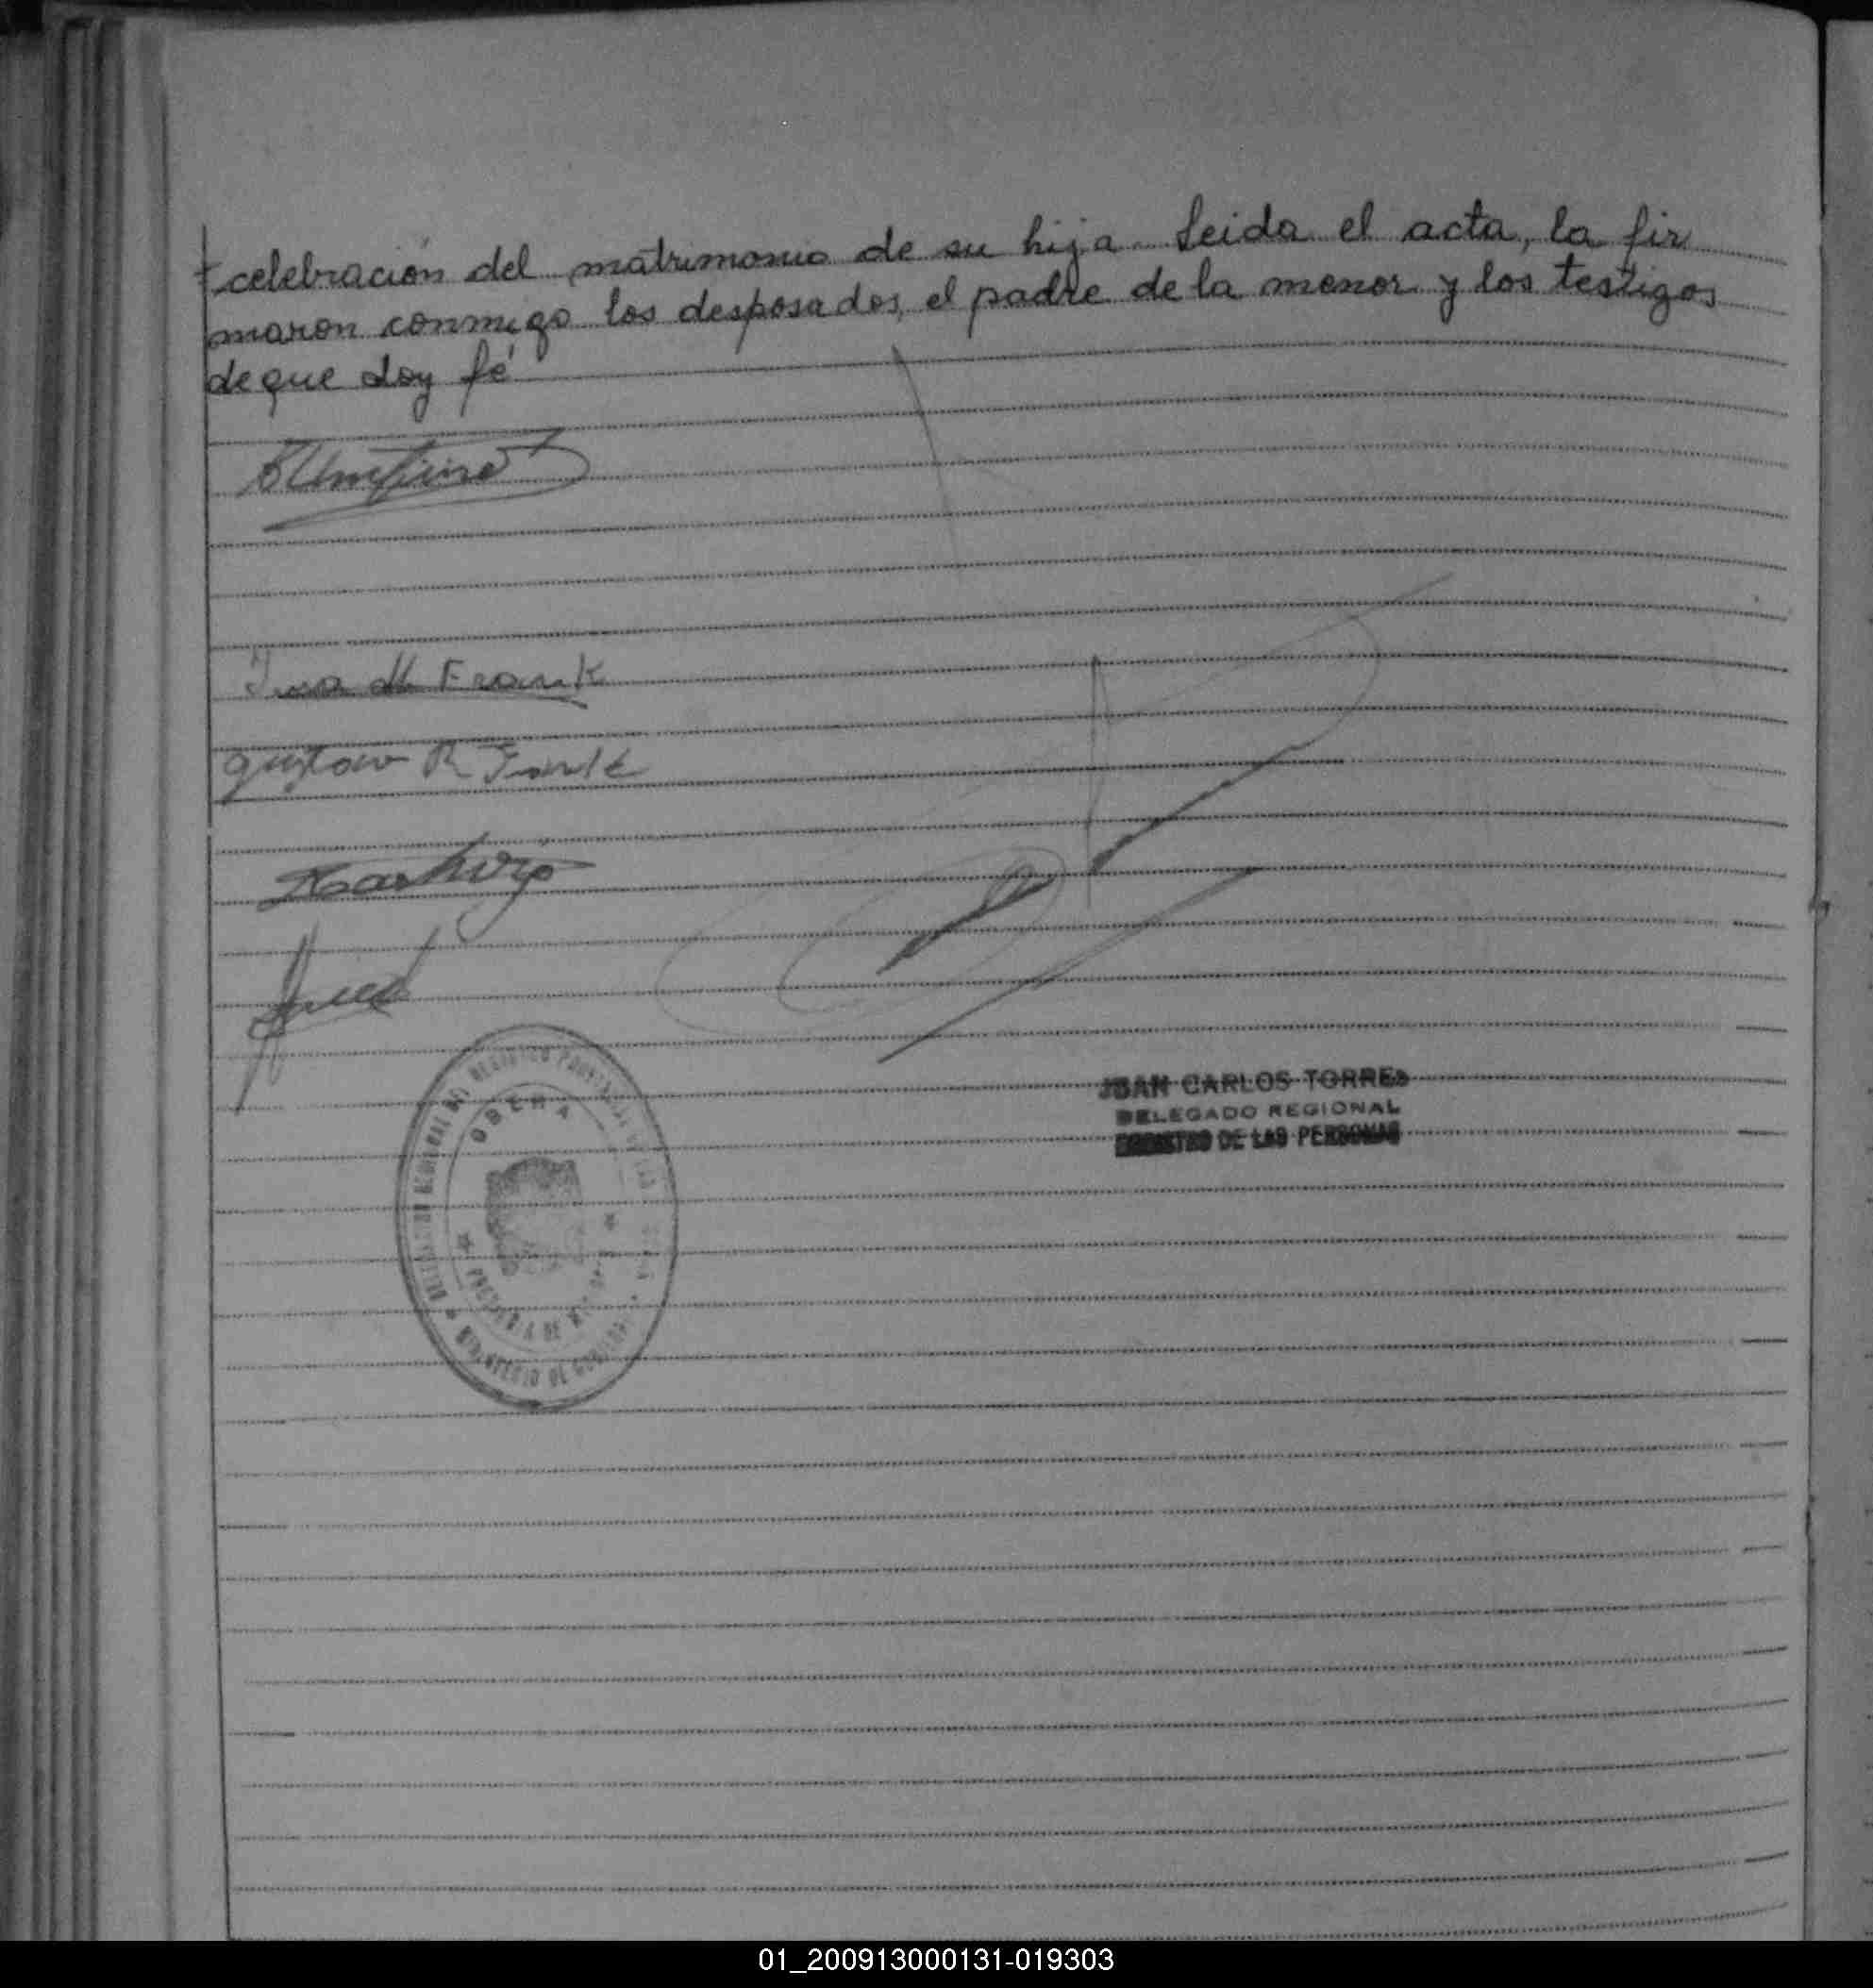 celebración del matrimonio de su hija. Leida el acta, la fir
maron conmigo los desposados, el padre de la menor y los testigos
de que doy fé
M Frank
Gustavo R Frank
OBERA
PROVINCIA DE
MINISTERIO DE GOBIERNO
JUAN CARLOS TORRES
DELEGADO REGIONAL
REGISTRO DE LAS PERSONAS
01_200913000131-019303